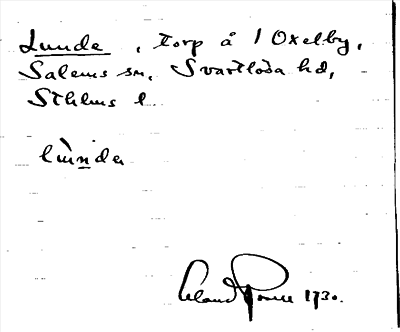 Lunde, torp å 1 Oxelby,
Salems sn, Svartlösa hd,
Sthlms l
lùnde
1930.